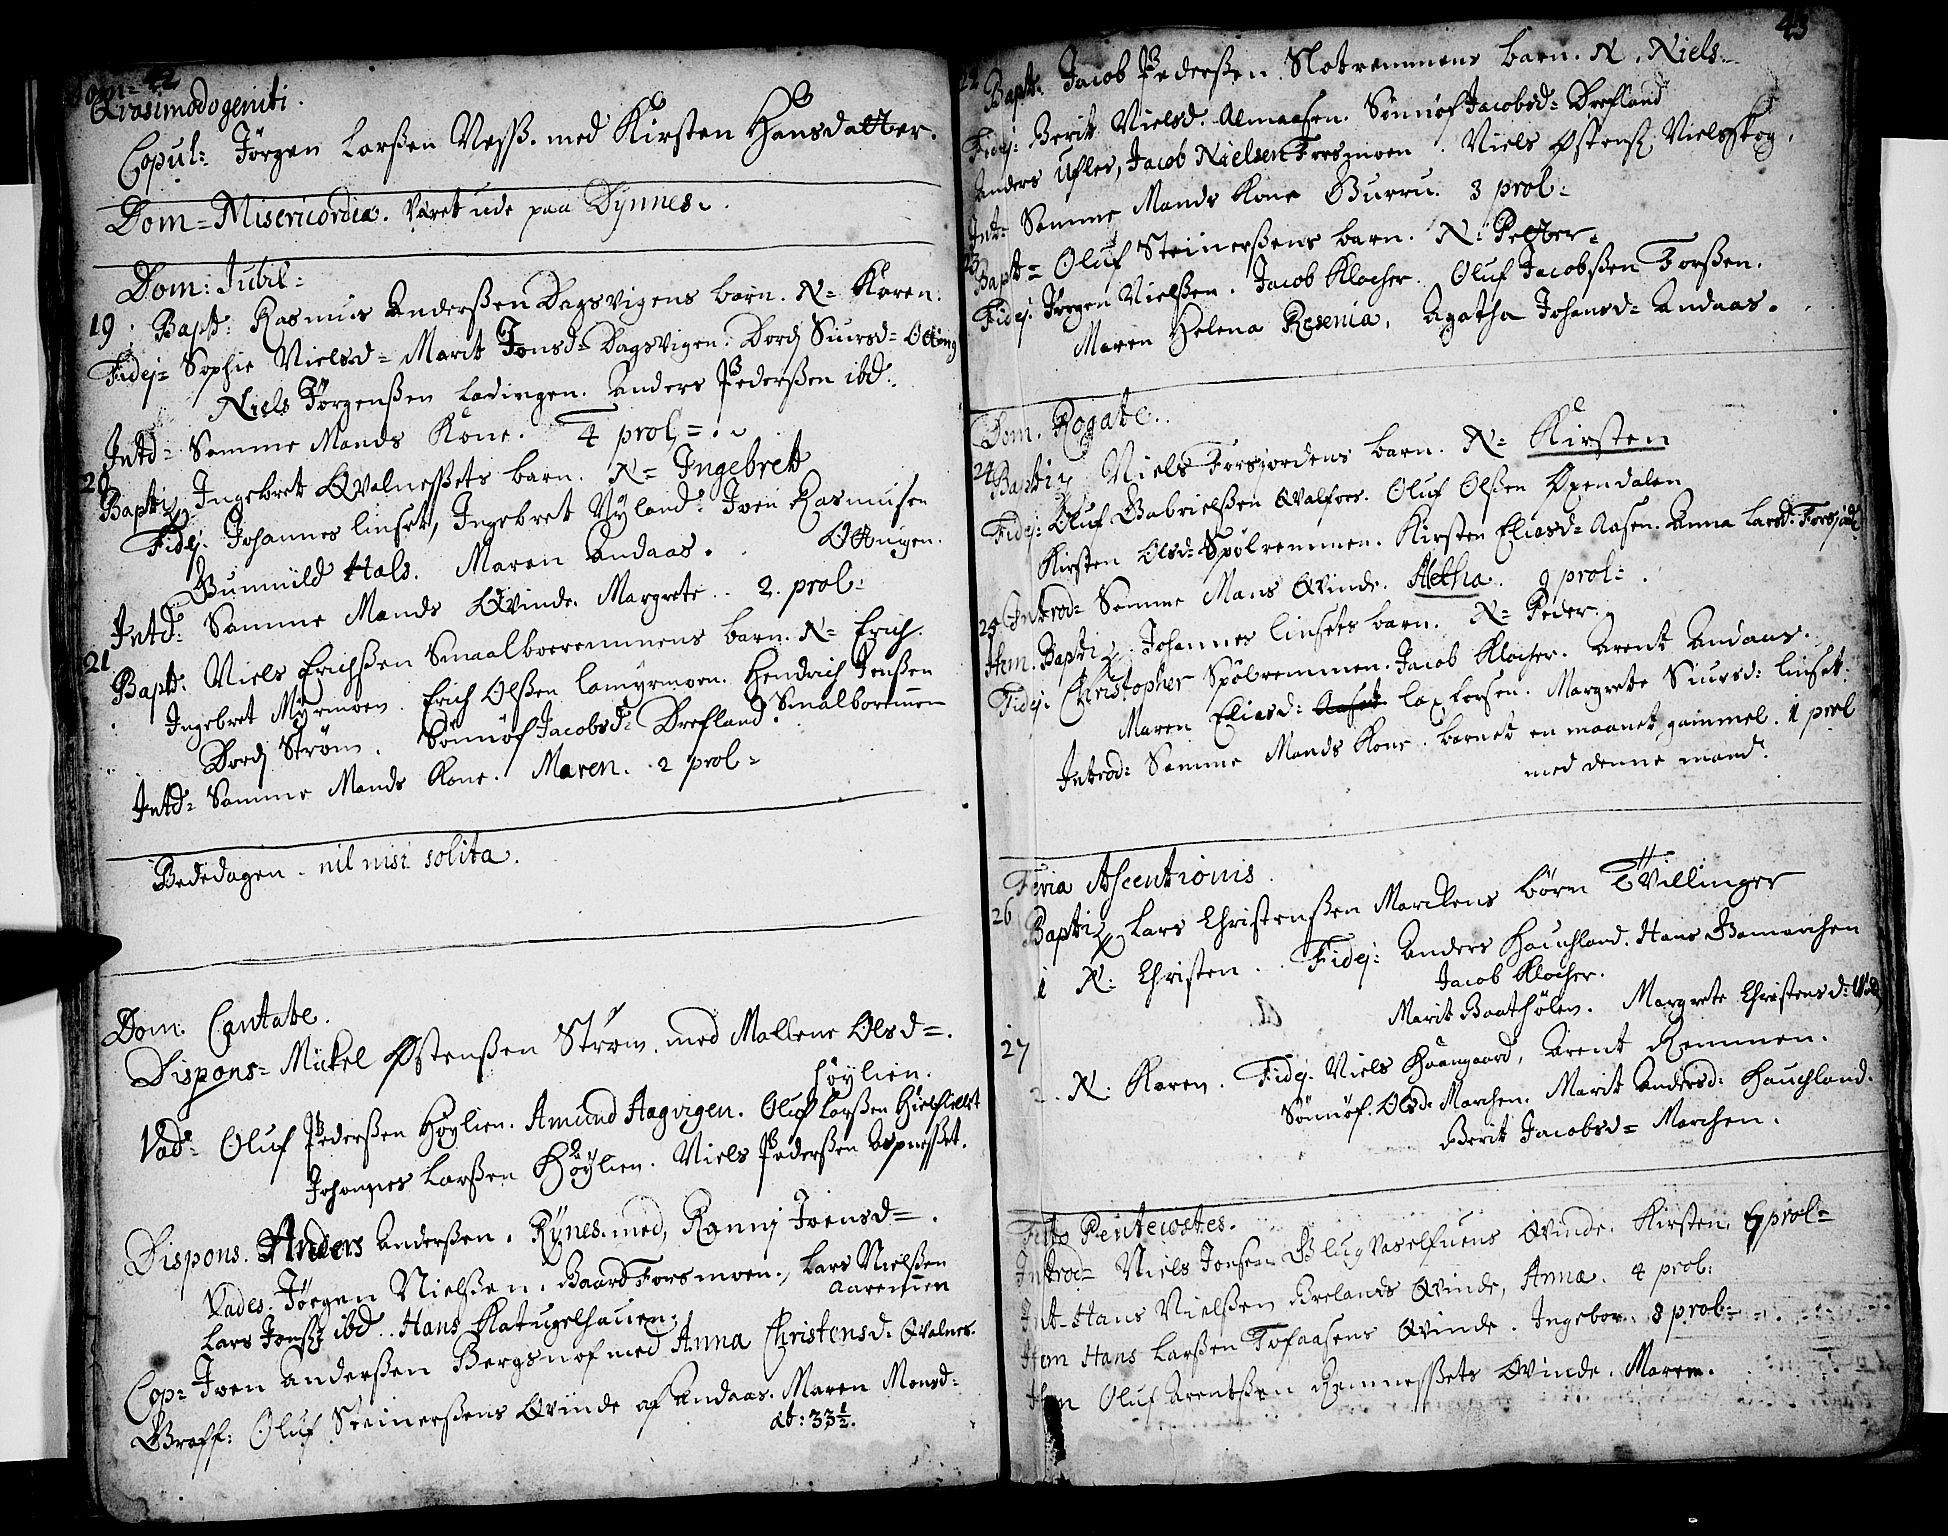 42
Dom=
Qvasimodogeniti.
Copul: Jörgen Larßen Neßs. med Kirsten Hansdatter.
Dom=Misericordia. Varet ude paa Dynnes.
Dom: Jubil=
19. Bapt: Rasmus Anderßen Dagsvigens barn. N= Karen.
Fidej= Sophie Nielsd= Marit Jonsd= Dagsvigen. Dordj Siursd=
Niels Jörgenßen Ladingen. Anders Pederßen ibd.
Intd= Samme Mands Kone. 4 prol=
20
Baptiz Ingebret Qvalneßets barn. N= Ingebret
Fidej. Johannes Linset, Ingebret Nyland. Iven Rasmusen
Ottingen.
Gunnild Hals. Maren Andaas.
Intd: Samme Mands Qvinde. Margrete. 2. prol=
21
Bapt: Niels Erichßen Smaalboeremmens barn. N= Erich.
Ingebret Myrmoen. Erich Olßen Lamyrmoen. Hendrich Jenßen
Smalboremen
Dordj Ström. Sönnöf Jacobsd= Drefland.
Intd= Samme Mands Kone. Maren. 2 prol=
Bededagen. nil nisi solita.
Dom: Cantate.
Dispons= Mickel Östenßen Ström. med Mallene Olsd=.
Höylien.
Vad= Oluf Pederßen Höylien. Amund Aagvigen. Oluf Larßen
Johannes Larßen Höylien. Niels Pederßen Aspneßet.
Dispons. Anders Anderßen. Rynes. med, Rannj Ivensd=.
Vades. Jörgen Nielßen. Baard Forsmoen., Lars Nielßen
Aaremen
Lars Jonß ibd.. Hans Katugelhauen.
Cop= Iven Anderßen Bergsnof med Anna Christensd= Qvalnes.
Graff: Oluf Steinerßens Qvinde af Andaas. Maren Monsd=
æt: 33½.
43
22 Bapt. Jacob Pederßen Slotremmens barn. N. Niels.
Fidej: Berit Nielsd. Almaasen. Sönnöf Jacobsd= Drefland
Anders Ufles, Jacob Nielsen Forsmoen. Niels Östenß Nielsskog.
Int= Samme Mands Kone Gurru. 3 prol=
23
Bapt= Oluf Steinerßens barn. N: Petter=
Fidej. Jörgen Nielßen. Jacob Klocher. Oluf Jacobßen Forßen.
Maren Helena Resenia. Agatha Johansd= Andaas.
Dom. Rogate.
24 Baptiz Niels Forsjordens barn. N= Kirsten
Fidej= Oluf Gabrielßen Qvalfors. Oluf Olßen Öxendalen
Kirsten Olsd= Spölremmen. Kirsten Eliasd= Aasen. Anna Larsd:
Introd= Samme Mans Qvinde. Aletha. 9 prol=
25 Item. Baptiz. Johannes Linsets barn. N= Peder.
Fidej: Christopher Spölremmen. Jacob Klocher. Arent Andaas.
Maren Eliasd: Laxforsen. Margrete Siursd: Linset.
Introd= Samme Mands Kone. barnet en maanet gammel. 1 prol
med denne mand.
Feria Ascentionis.
26 Baptiz Lars Christenßen Marchens börn Tvillinger
1 N: Christen. Fidej: Anders Hauchland. Hans Bamarchen
Jacob Klocher.
Marit Baathölen. Margrete Christensd=
27
2. N: Karen. Fidej. Niels Haangaard, Arent Remmen.
Sönnöf. Olsd. Marchen. Marit Andersd: Hauchland.
Berit Jacobsd= Marchen.
Festo Pentecostes.
Introd= Niels Jonsen Qvinde. Kirsten. 7 prol=
Int= Hans Nielßen Brelands Qvinde, Anna. 4 prol:
Item Hans Larßen Tofaasens Qvinde. Ingebor. 8 prol=
Item Oluf Arentßen Remneßets Qvinde. Maren.